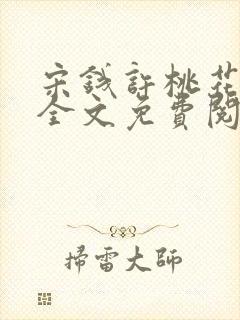 宋錢許桃花
全文免費閱
掃雷大師